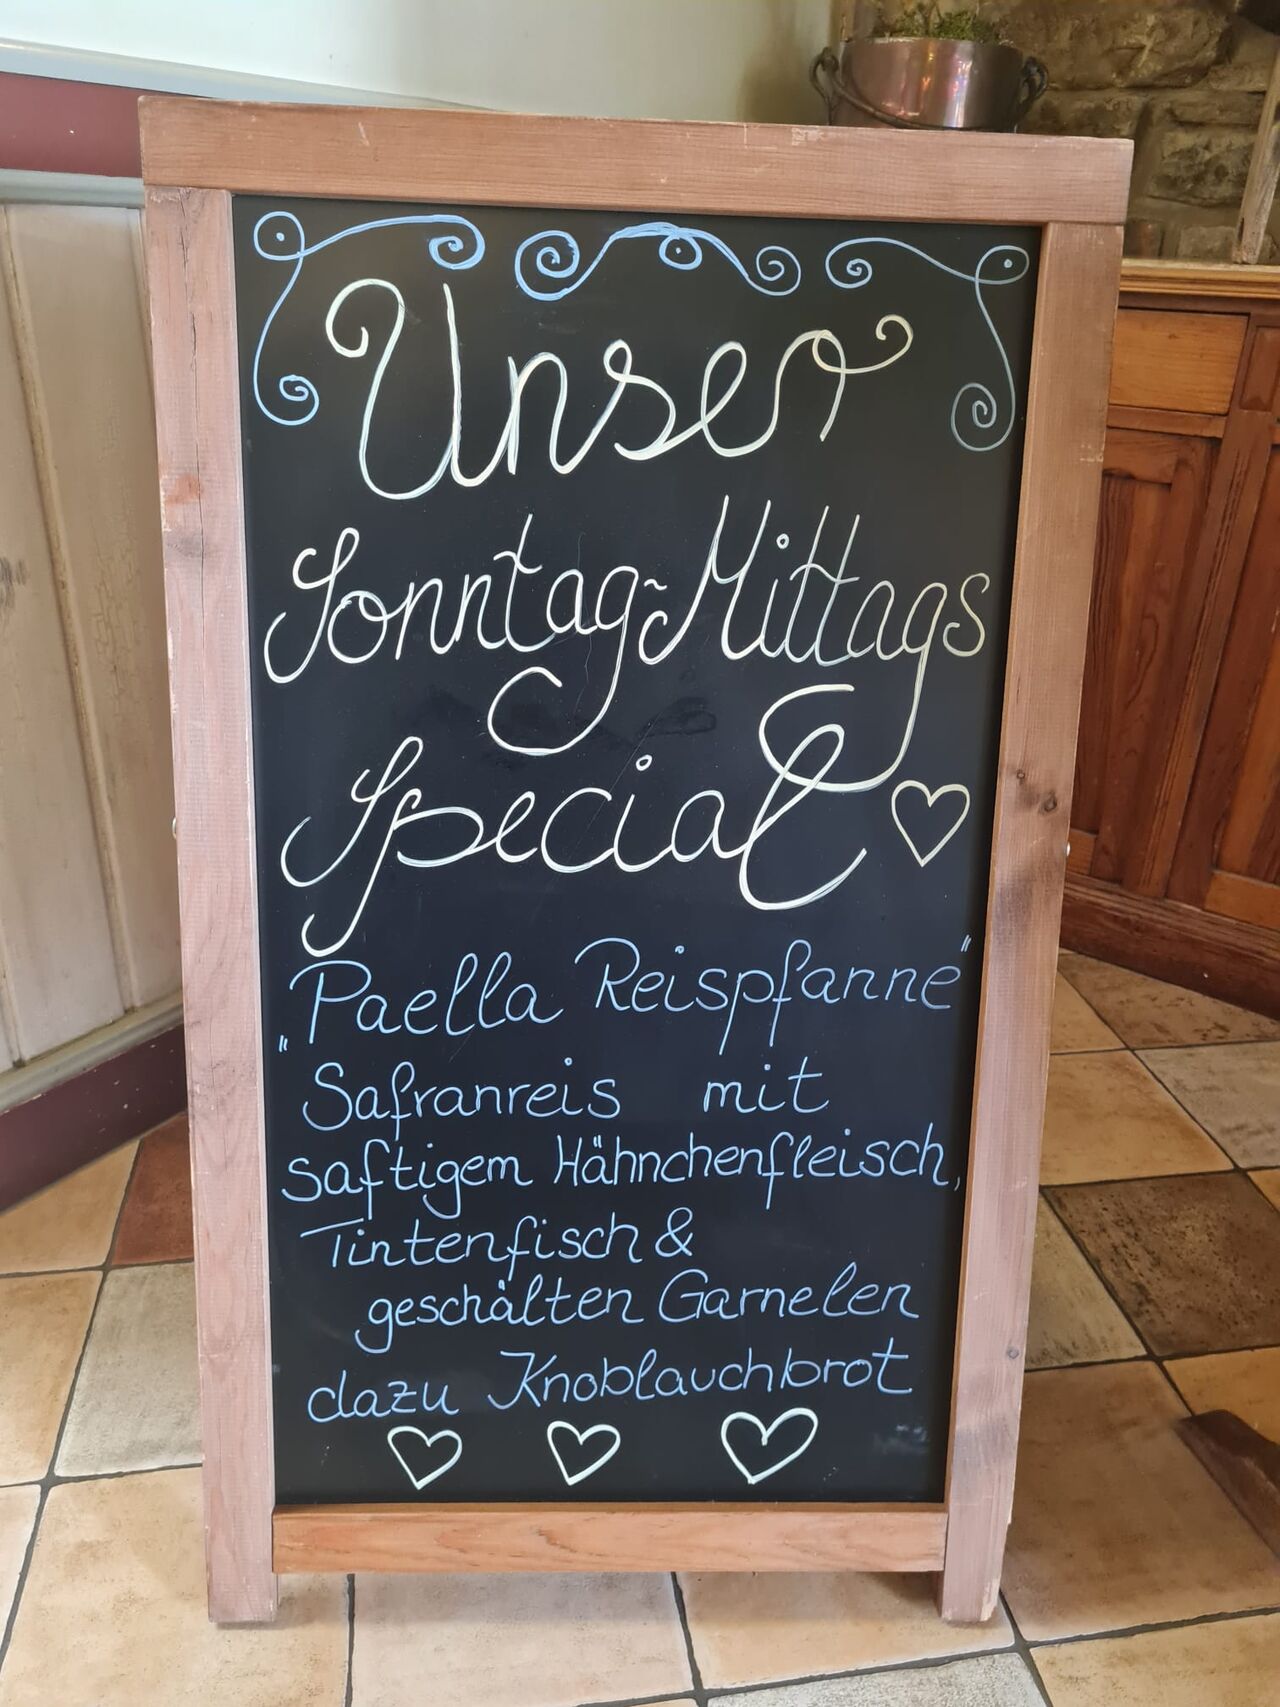 Unser
Sonntag-Mittags
Special
„Paella Reispfanne“
Safranreis mit
saftigem Hähnchenfleisch,
Tintenfisch &
geschälten Garnelen
dazu Knoblauchbrot